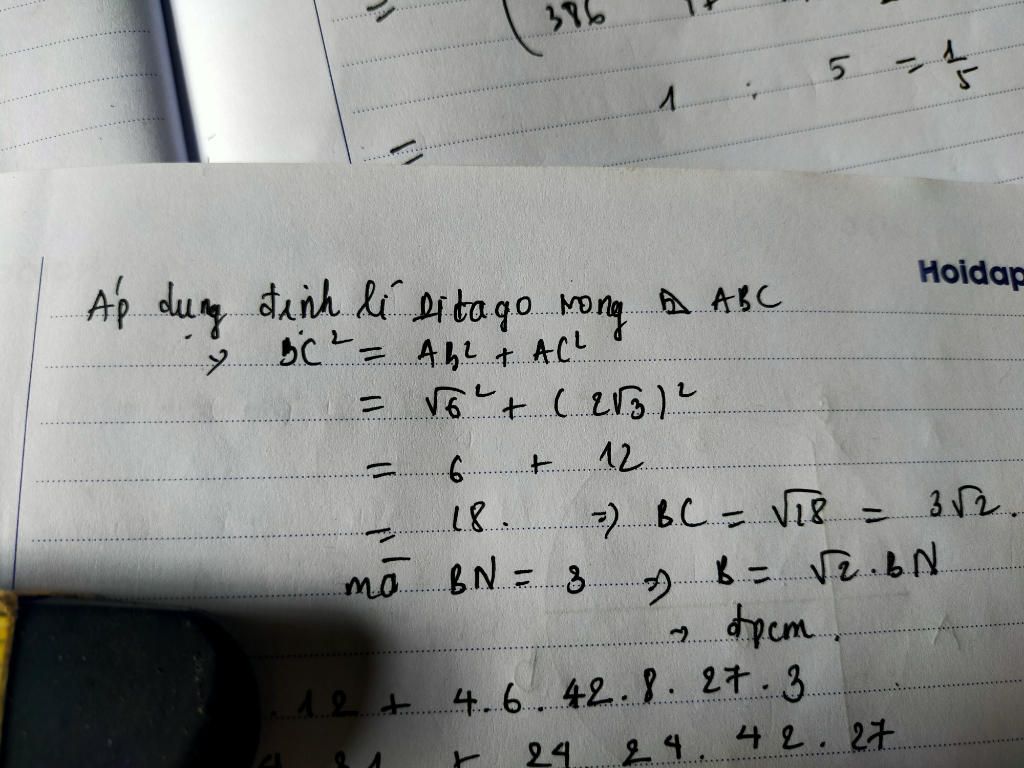 = ( 386
1 : 5 = 1/5
=
Hoidap
Áp dụng định lí Pitago trong Δ ABC
=> BC² = AB² + AC²
= √6² + (2√3)²
= 6 + 12
= 18. => BC = √18 = 3√2.
mà BN = 3 => B = √2.BN
→ đpcm.
.12 + 4.6.42.8.27.3
+ 24 24.42.27